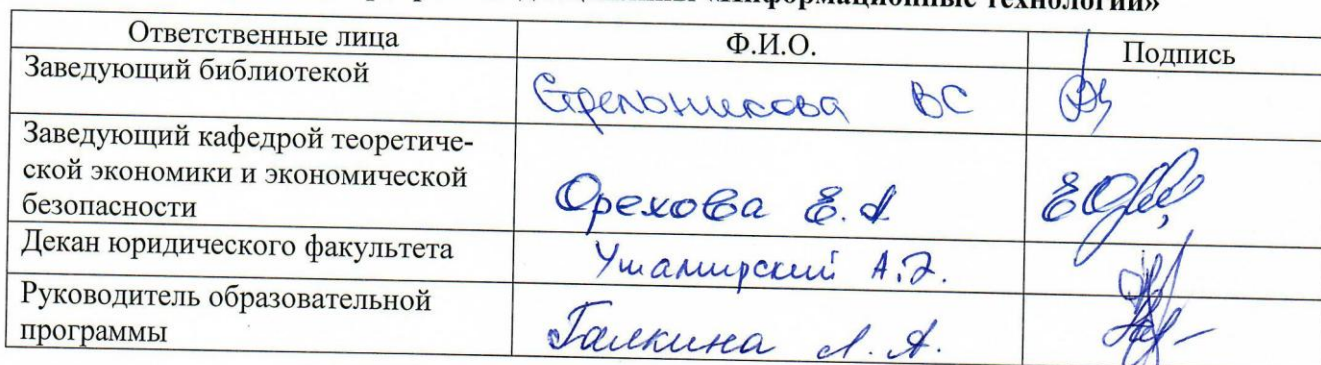 «Информационные технологии»
Ответственные лица Ф.И.О. Подпись
Заведующий библиотекой Стрельникова ВС
Заведующий кафедрой теоретиче-
ской экономики и экономической
безопасности Орехова Е.А
Декан юридического факультета Ушамирский А.Э.
Руководитель образовательной
программы Галкина Л.А.